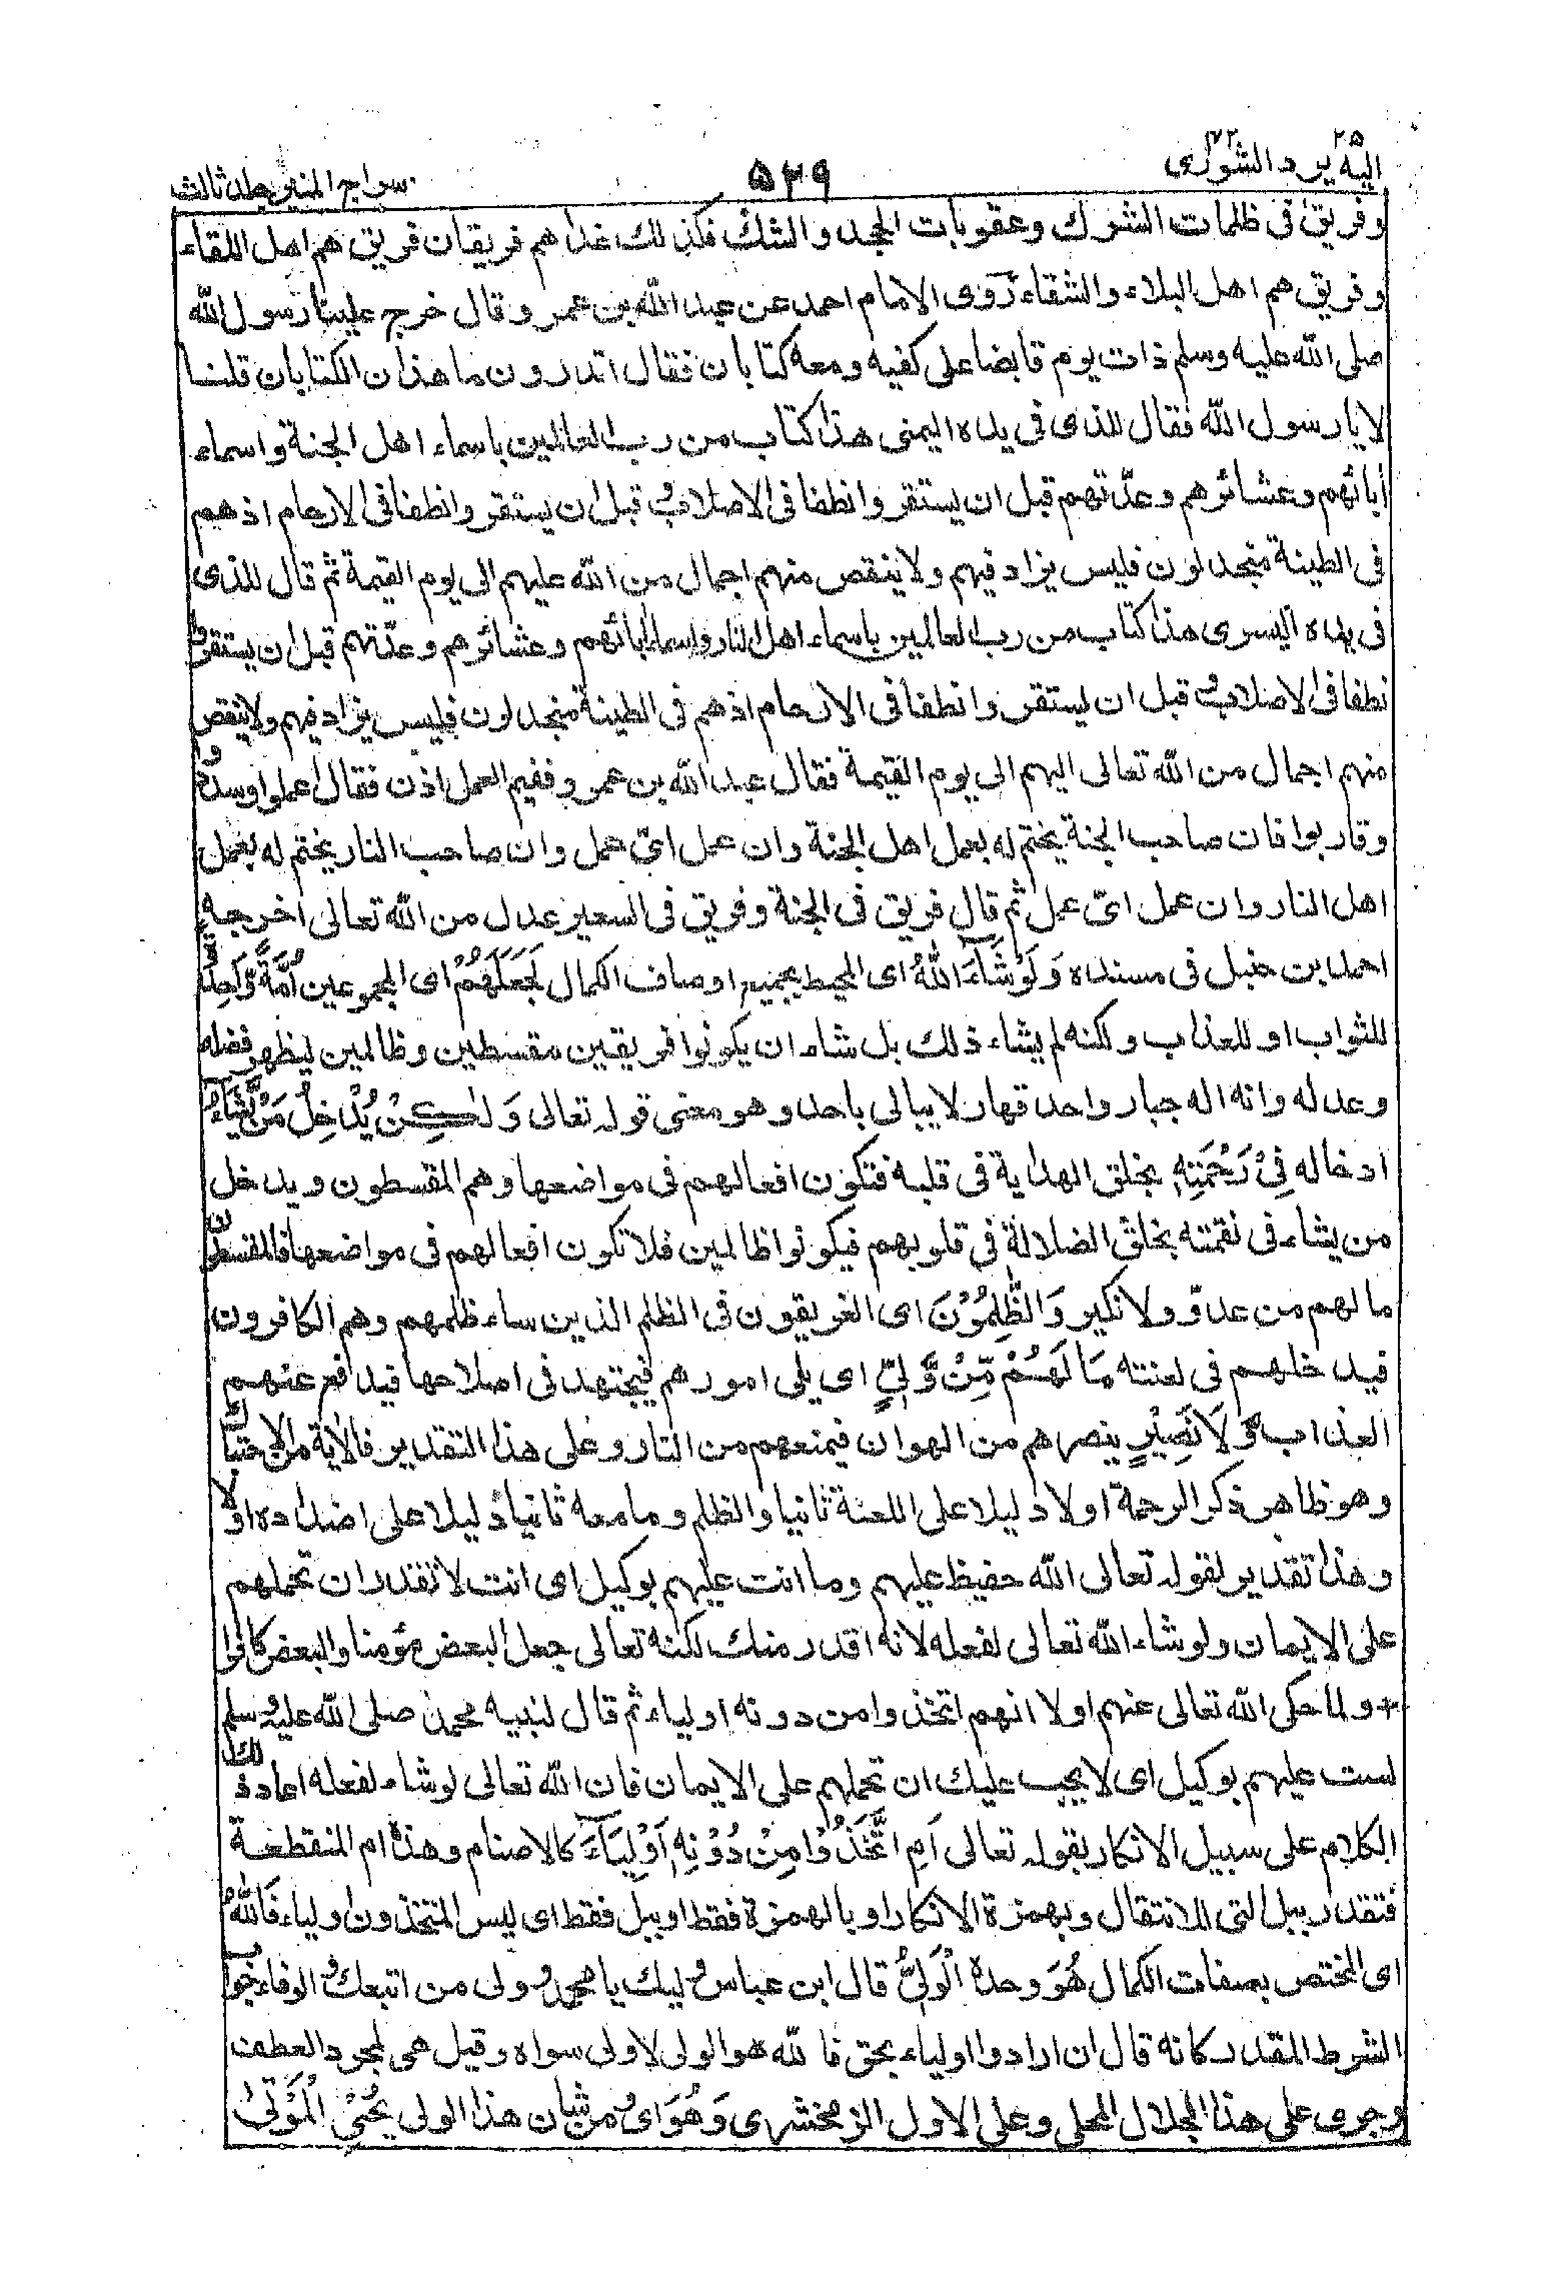 اليه يرد ٢٥ الشورى ٤٢
٥٢٩
سراج المنير جلد ثالث
وفريق فى ظلمات الشرك وعقوبات الجحد والشك فكذلك غدا هم فريقان فريق هم اهل اللقاء
وفريق هم اهل البلاء والشقاء روى الامام احمد عن عبد الله بن عمرو قال خرج علينا رسول الله
صلى الله عليه وسلم ذات يوم قابضا على كفيه ومعه كتابان فقال اتدرون ما هذان الكتابان قلنا
لا يا رسول الله فقال للذى فى يده اليمنى هذا كتاب من رب العالمين باسماء اهل الجنة واسماء
أبائهم وعشائرهم وعدّتهم قبل ان يستقروا نطفا فى الاصلاب وقبل ان يستقروا نطفا فى الارحام اذ هم
فى الطينة منجدلون فليس يزاد فيهم ولا ينقص منهم اجمال من الله عليهم الى يوم القيمة ثم قال للذى
فى يده اليسرى هذا كتاب من رب العالمين باسماء اهل النار واسماء أبائهم وعشائرهم وعدّتهم قبل ان يستقروا
نطفا فى الاصلاب وقبل ان يستقروا نطفا فى الارحام اذ هم فى الطينة منجدلون فليس يزاد فيهم ولا ينقص
منهم اجمال من الله تعالى اليهم الى يوم القيمة فقال عبد الله بن عمرو ففيم العمل اذن فقال اعملوا وسددوا
وقاربوا فان صاحب الجنة يختم له بعمل اهل الجنة وان عمل اىّ عمل وان صاحب النار يختم له بعمل
اهل النار وان عمل اىّ عمل ثم قال فريق فى الجنة وفريق فى السعير عدل من الله تعالى اخرجه
احمد بن حنبل فى مسنده وَلَوْ شَآءَ اللّٰهُ اى المحيط بجميع اوصاف الكمال لَجَعَلَهُمْ اى المجموعين اُمَّةً وَّاحِدَةً
للثواب او للعذاب ولكنه لم يشاء ذلك بل شاء ان يكونوا فريقين مقسطين وظالمين ليظهر فضله
وعدله وانه اله جبار واحد قهار لا يبالى باحد وهو معنى قوله تعالى وَلٰكِنْ يُّدْخِلُ مَنْ يَّشَآءُ
ادخاله فِيْ رَحْمَتِهٖ بخلق الهداية فى قلبه فتكون افعالهم فى مواضعها وهم المقسطون ويدخل
من يشاء فى نقمته بخلق الضلالة فى قلوبهم فيكونوا ظالمين فلا تكون افعالهم فى مواضعها فالمقسطون
ما لهم من عدوّ ولا نكير وَالظّٰلِمُوْنَ اى الغريقون فى الظلم الذين ساء ظلمهم وهم الكافرون
فيدخلهم فى لعنته مَا لَهُمْ مِّنْ وَّلِيٍّ اى يلى امورهم فيجتهد فى اصلاحها فيدافع عنهم
العذاب وَّلَا نَصِيْرٍ ينصرهم من الهوان فيمنعهم من النار وعلى هذا التقدير فالاية من الاحتباك
وهو ظاهر ذكر الرحمة اولا دليلا على اللعنة ثانيا والظلم وما معه ثانيا دليلا على اضداده اولا
وهذا تقدير لقوله تعالى الله حفيظ عليهم وما انت عليهم بوكيل اى انت لا تقدر ان تحملهم
على الايمان ولو شاء الله تعالى لفعله لانه اقدر منك لكنه تعالى جعل البعض مؤمنا والبعض كافرا
+ ولما حكى الله تعالى عنهم اولا انهم اتخذوا من دونه اولياء ثم قال لنبيه محمد صلى الله عليه وسلم
لست عليهم بوكيل اى لا يجب عليك ان تحملهم على الايمان فان الله تعالى لو شاء لفعله اعاد ذلك
الكلام على سبيل الانكار بقوله تعالى اَمِ اتَّخَذُوْا مِنْ دُوْنِهٖٓ اَوْلِيَآءَ كالاصنام وهذه ام المنقطعة
فتقدر ببل التى للانتقال وبهمزة الانكار او بالهمزة فقط او ببل فقط اى ليس المتخذون اولياء فَاللّٰهُ
اى المختص بصفات الكمال هُوَ وحده الْوَلِيُّ قال ابن عباس وليك يا محمد وولى من اتبعك والفاء جواب
الشرط المقدر كانه قال ان ارادوا اولياء بحق فالله هو الولى لا ولى سواه وقيل هى لمجرد العطف
وجرى على هذا الجلال المحلى وعلى الاول الزمخشرى وَهُوَ اى ومن شان هذا الولى يُحْيِ الْمَوْتٰى